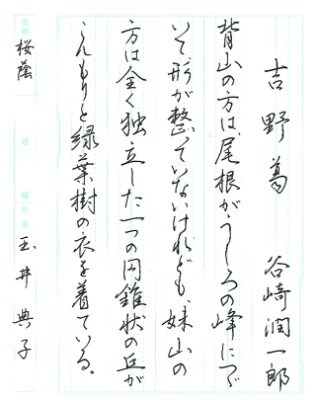 吉野葛　谷崎潤一郎
背山の方は、尾根がうしろの峰につゞ
いて形が整っていないけれども、妹山の
方は全く独立した一つの円錐状の丘が
こんもりと緑葉樹の衣を着ている。
桜蔭　玉井典子